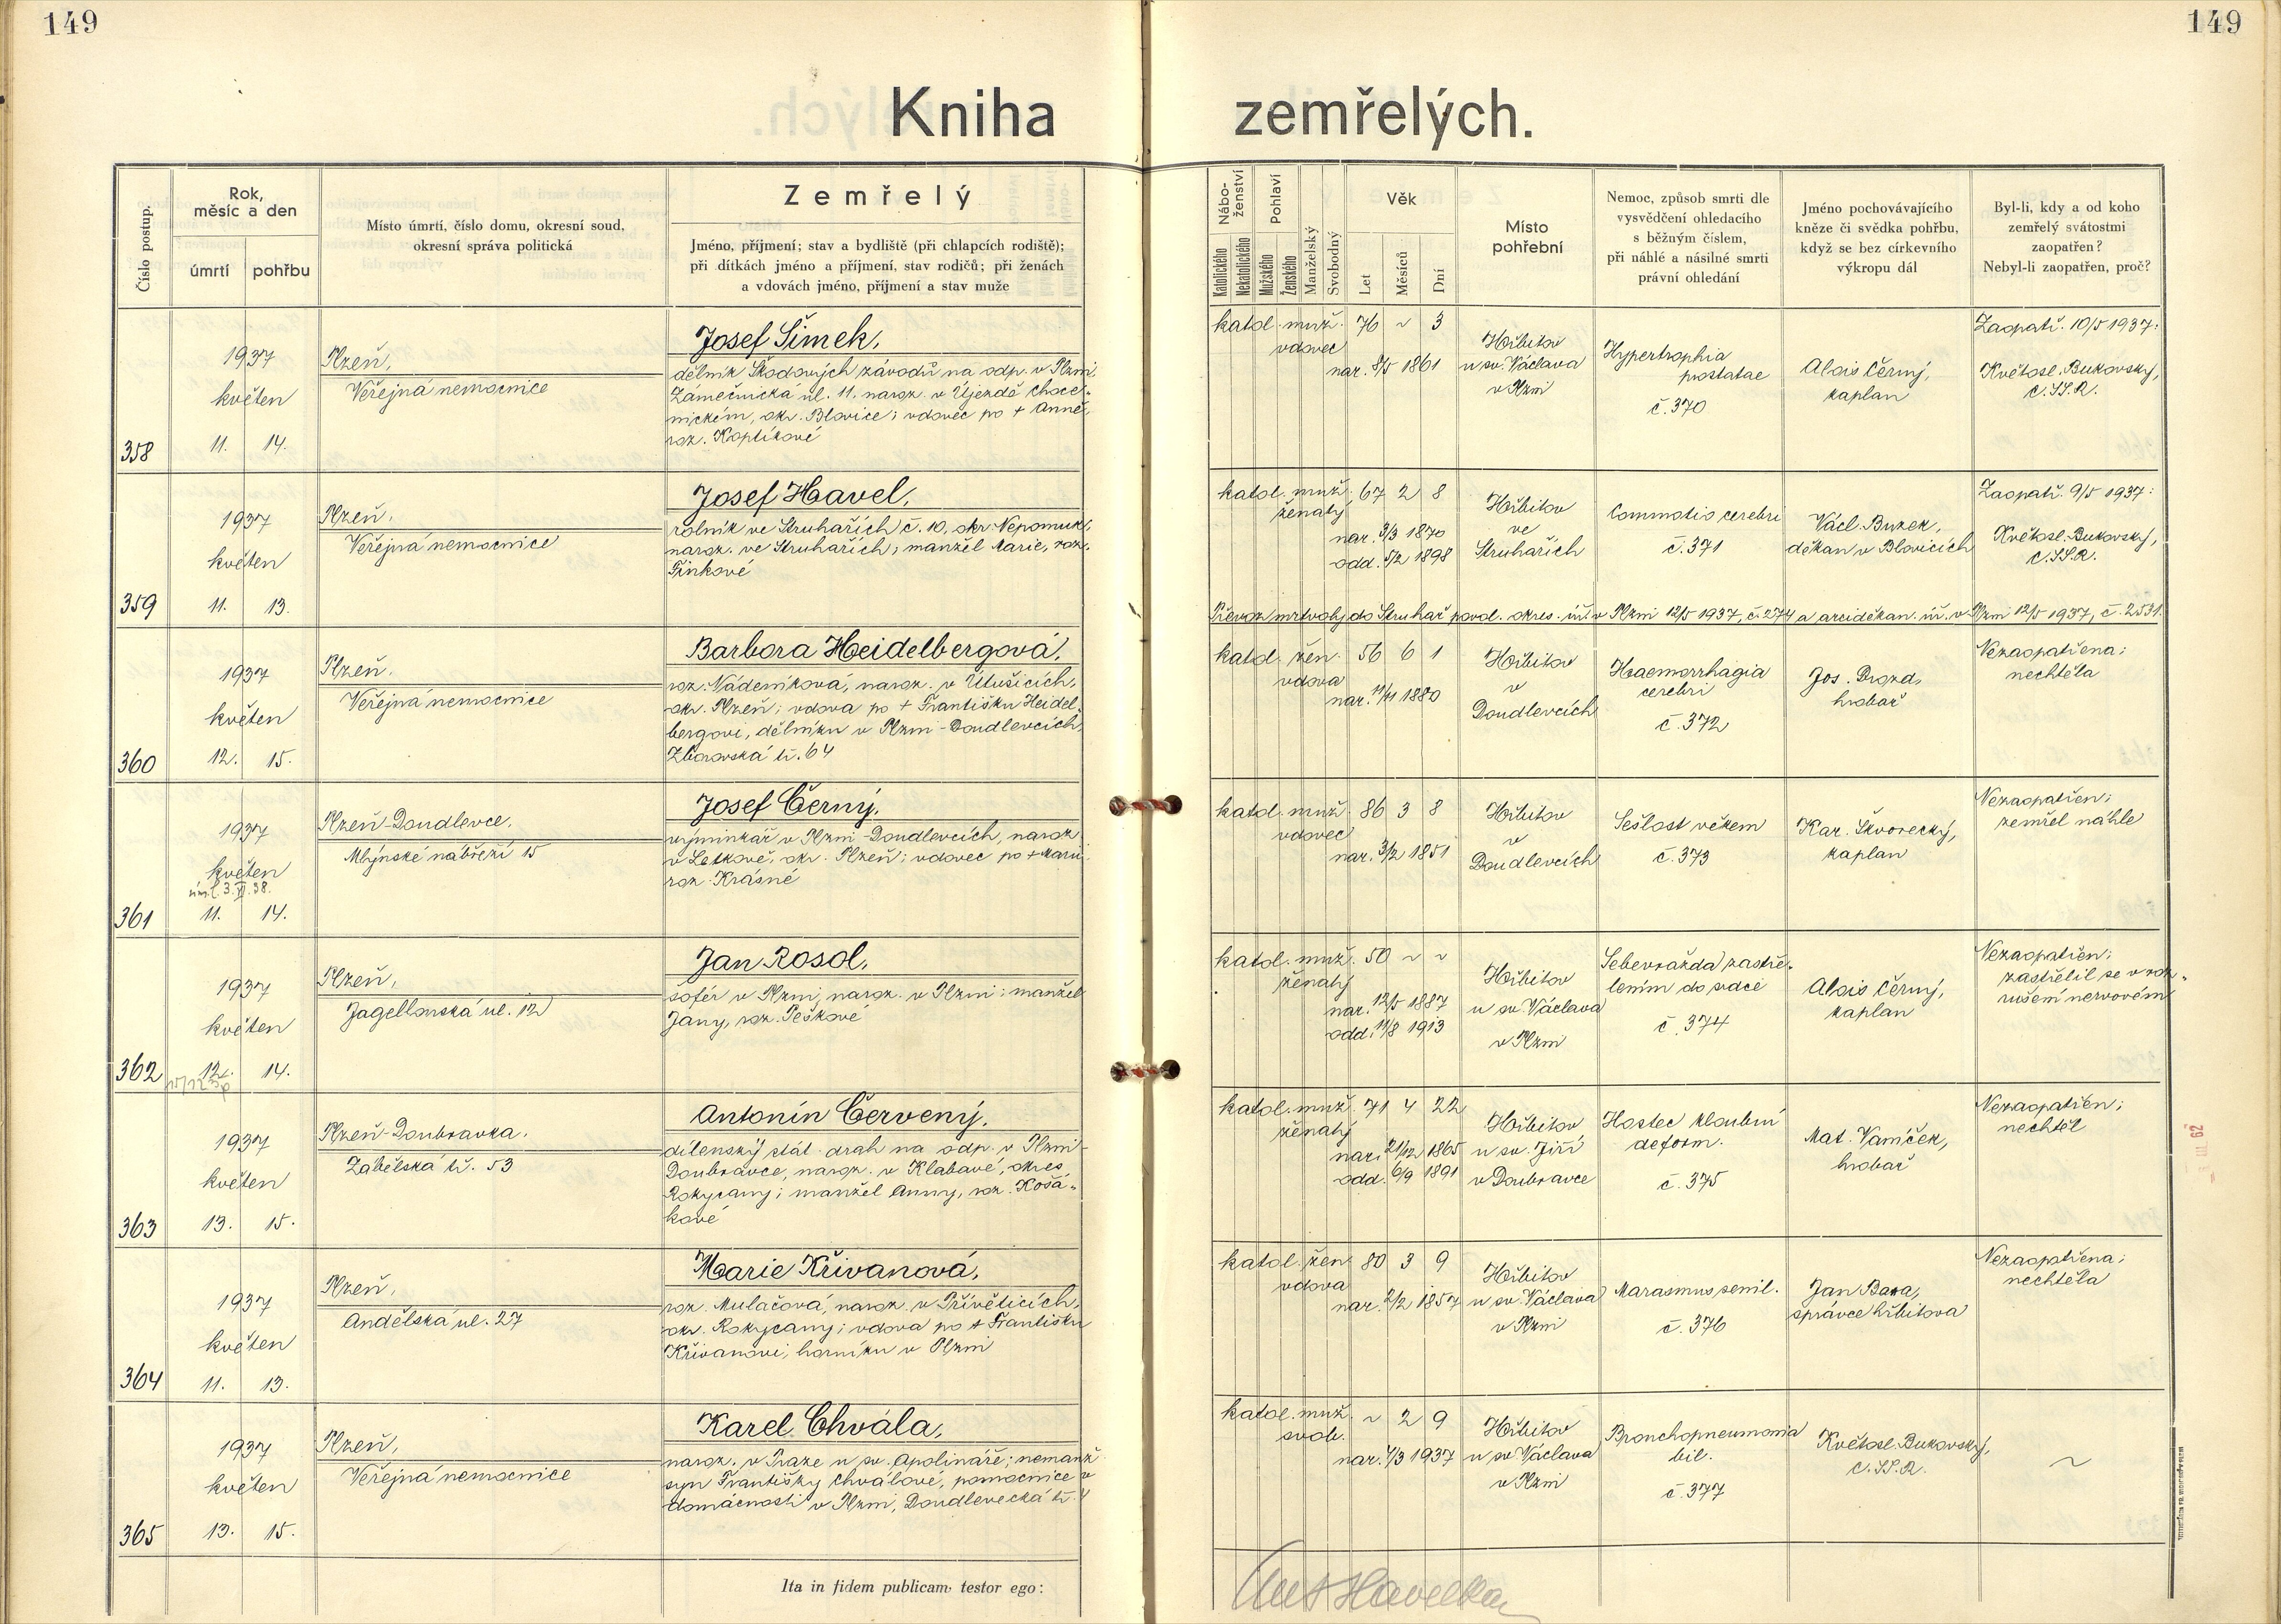 149
149
Kniha zemřelých.
Číslo postup.
Rok,
měsíc a den
úmrtí
pohřbu
Místo úmrtí, číslo domu, okresní soud,
okresní správa politická
Zemřelý
Jméno, příjmení; stav a bydliště (při chlapcích rodiště);
při dítkách jméno a příjmení, stav rodičů; při ženách
a vdovách jméno, příjmení a stav muže
Nábo-
ženství
Katolického
Nekatolického
Pohlaví
Mužského
Ženského
Manželský
Svobodný
Věk
Let
Měsíců
Dní
Místo
pohřební
Nemoc, způsob smrti dle
vysvědčení ohledacího
s běžným číslem,
při náhlé a násilné smrti
právní ohledání
Jméno pochovávajícího
kněze či svědka pohřbu,
když se bez církevního
výkropu dál
Byl-li, kdy a od koho
zemřelý svátostmi
zaopatřen?
Nebyl-li zaopatřen, proč?
358
1937
květen
11. 14.
Plzeň,
Veřejná nemocnice
Josef Šimek,
dělník Škodových závodů na odp. v Plzni,
Zámečnická ul. 11. naroz. v Újezdě Choce-
nickém, okr. Blovice; vdovec po + Anně,
roz. Koptíkové
katol. muž. 76 ~ 3
vdovec
nar. 8/5 1861
Hřbitov
u sv. Václava
v Plzni
Hypertrophia
prostatae
č. 370
Alois Černý,
kaplan
Zaopatř. 10/5 1937:
Květosl. Bukovský,
C.SS.R.
359
1937
květen
11. 13.
Plzeň,
Veřejná nemocnice
Josef Havel,
rolník ve Struhařích č. 10, okr. Nepomuk,
naroz. ve Struhařích; manžel Marie, roz.
Finkové
katol. muž. 67 2 8
ženatý
nar. 3/3 1870
odd. 5/2 1898
Hřbitov
ve
Struhařích
Commotio cerebri
č. 371
Václ. Buzek,
děkan v Blovicích
Zaopatř. 9/5 1937:
Květosl. Bukovský,
C.SS.R.
Převoz mrtvoly do Struhař povol. okres. úř. v Plzni 12/5 1937, č. 274 a arciděkan. úř. v Plzni 12/5 1937, č. 2531.
360
1937
květen
12. 15.
Plzeň,
Veřejná nemocnice
Barbora Heidelbergová,
roz. Nádeníková, naroz. v Útušicích,
okr. Plzeň; vdova po + Františku Heidel-
bergovi, dělníku v Plzni-Doudlevcích,
Zborovská tř. 64
katol. žen. 56 6 1
vdova
nar. 11/11 1880
Hřbitov
v
Doudlevcích
Haemorrhagia
cerebri
č. 372
Jos. Drozd,
hrobař
Nezaopatřena;
nechtěla
361
1937
květen
11. 14.
Plzeň-Doudlevce,
Mlýnské nábřeží 15
Josef Černý,
výminkář v Plzni-Doudlevcích, naroz.
v Letkově, okr. Plzeň; vdovec po + Marii
roz. Krásné
katol. muž. 86 3 8
vdovec
nar. 3/2 1851
Hřbitov
v
Doudlevcích
Sešlost věkem
č. 373
Kar. Škvorecký,
kaplan
Nezaopatřen;
zemřel náhle
362
1937
květen
12. 14.
Plzeň,
Jagellonská ul. 12
Jan Rosol,
šofér v Plzni, naroz. v Plzni; manžel
Jany, roz. Peškové
katol. muž. 50 ~ ~
ženatý
nar. 12/5 1887
odd. 11/8 1913
Hřbitov
u sv. Václava
v Plzni
Sebevražda zastře-
lením do srdce
č. 374
Alois Černý,
kaplan
Nezaopatřen;
zastřelil se v roz-
rušení nervovém
363
1937
květen
13. 15.
Plzeň-Doubravka,
Zábělská tř. 53
Antonín Červený,
dílenský stát. drah na odp. v Plzni-
Doubravce, naroz. v Klabavě, okres
Rokycany; manžel Anny, roz. Košá-
kové
katol. muž. 71 4 22
ženatý
nar. 21/12 1865
odd. 6/9 1891
Hřbitov
u sv. Jiří
v Doubravce
Hostec kloubní
deform.
č. 375
Mat. Vaníček,
hrobař
Nezaopatřen;
nechtěl
364
1937
květen
11. 13.
Plzeň,
Andělská ul. 27
Marie Křivanová,
roz. Mulačová, naroz. v Přívěticích,
okr. Rokycany; vdova po + Františku
Křivanovi, horníku v Plzni
katol. žen. 80 3 9
vdova
nar. 2/2 1857
Hřbitov
u sv. Václava
v Plzni
Marasmus senil.
č. 376
Jan Bara,
správce hřbitova
Nezaopatřena;
nechtěla
365
1937
květen
13. 15.
Plzeň,
Veřejná nemocnice
Karel Chvála,
naroz. v Praze u sv. Apolináře; nemanž.
syn Františky Chválové, pomocnice v
domácnosti v Plzni, Doudlevecká tř. 4
katol. muž. ~ 2 9
svob.
nar. 4/3 1937
Hřbitov
u sv. Václava
v Plzni
Bronchopneumonia
bil.
č. 377
Květosl. Bukovský,
C.SS.R.
~
Ita in fidem publicam testor ego:
Ant Havelka